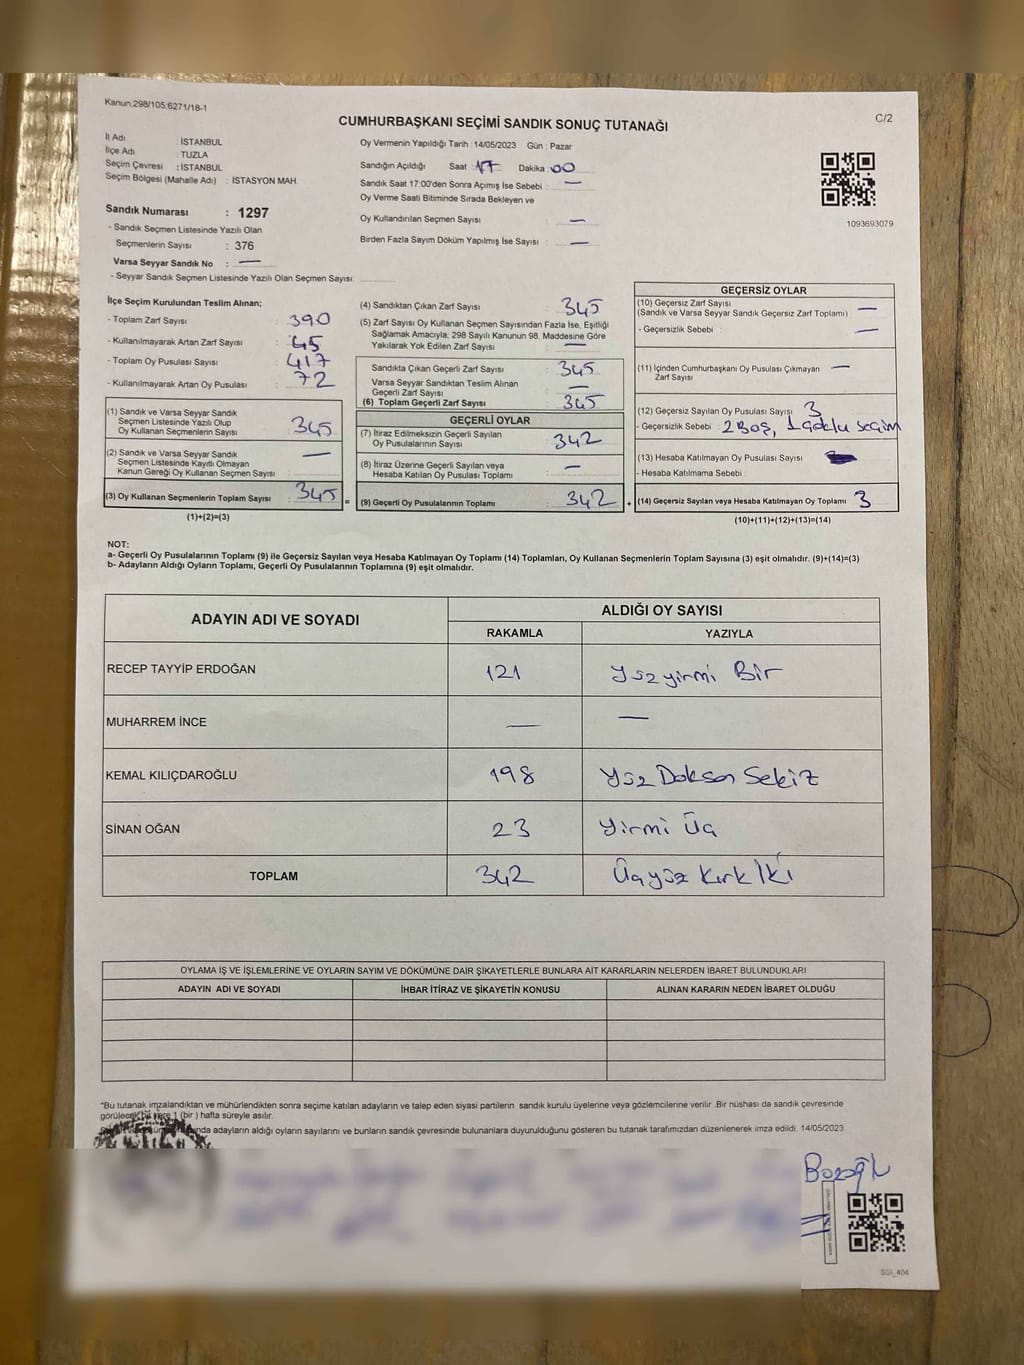 Kanun,298/105,6271/18-1
C/2
CUMHURBAŞKANI SEÇİMİ SANDIK SONUÇ TUTANAĞI
İl Adı : İSTANBUL
İlçe Adı : TUZLA
Seçim Çevresi : İSTANBUL
Seçim Bölgesi (Mahalle Adı) : İSTASYON MAH.
Sandık Numarası : 1297
- Sandık Seçmen Listesinde Yazılı Olan
Seçmenlerin Sayısı : 376
Varsa Seyyar Sandık No : —
- Seyyar Sandık Seçmen Listesinde Yazılı Olan Seçmen Sayısı:
Oy Vermenin Yapıldığı Tarih :14/05/2023 Gün : Pazar
Sandığın Açıldığı Saat : 17 Dakika : 00
Sandık Saat 17:00'den Sonra Açımış İse Sebebi : —
Oy Verme Saati Bitiminde Sırada Bekleyen ve
Oy Kullandırılan Seçmen Sayısı : —
Birden Fazla Sayım Döküm Yapılmış İse Sayısı : —
1093693079
İlçe Seçim Kurulundan Teslim Alınan;
- Toplam Zarf Sayısı : 390
- Kullanılmayarak Artan Zarf Sayısı : 45
- Toplam Oy Pusulası Sayısı : 417
- Kullanılmayarak Artan Oy Pusulası : 72
(1) Sandık ve Varsa Seyyar Sandık
Seçmen Listesinde Yazılı Olup
Oy Kullanan Seçmenlerin Sayısı : 345
(2) Sandık ve Varsa Seyyar Sandık
Seçmen Listesinde Kayıtlı Olmayan
Kanun Gereği Oy Kullanan Seçmen Sayısı : —
(3) Oy Kullanan Seçmenlerin Toplam Sayısı : 345 =
(1)+(2)=(3)
(4) Sandıktan Çıkan Zarf Sayısı : 345
(5) Zarf Sayısı Oy Kullanan Seçmen Sayısından Fazla İse, Eşitliği
Sağlamak Amacıyla; 298 Sayılı Kanunun 98. Maddesine Göre
Yakılarak Yok Edilen Zarf Sayısı : —
Sandıkta Çıkan Geçerli Zarf Sayısı : 345
Varsa Seyyar Sandıktan Teslim Alınan
Geçerli Zarf Sayısı : —
(6) Toplam Geçerli Zarf Sayısı : 345
GEÇERLİ OYLAR
(7) İtiraz Edilmeksizin Geçerli Sayılan
Oy Pusulalarının Sayısı : 342
(8) İtiraz Üzerine Geçerli Sayılan veya
Hesaba Katılan Oy Pusulası Toplamı : —
(9) Geçerli Oy Pusulalarının Toplamı : 342 +
GEÇERSİZ OYLAR
(10) Geçersiz Zarf Sayısı
(Sandık ve Varsa Seyyar Sandık Geçersiz Zarf Toplamı) : —
- Geçersizlik Sebebi : —
(11) İçinden Cumhurbaşkanı Oy Pusulası Çıkmayan
Zarf Sayısı : —
(12) Geçersiz Sayılan Oy Pusulası Sayısı : 3
- Geçersizlik Sebebi : 2 Boş, 1 çoklu seçim
(13) Hesaba Katılmayan Oy Pusulası Sayısı :
- Hesaba Katılmama Sebebi :
(14) Geçersiz Sayılan veya Hesaba Katılmayan Oy Toplamı : 3
(10)+(11)+(12)+(13)=(14)
NOT:
a- Geçerli Oy Pusulalarının Toplamı (9) ile Geçersiz Sayılan veya Hesaba Katılmayan Oy Toplamı (14) Toplamları, Oy Kullanan Seçmenlerin Toplam Sayısına (3) eşit olmalıdır. (9)+(14)=(3)
b- Adayların Aldığı Oyların Toplamı, Geçerli Oy Pusulalarının Toplamına (9) eşit olmalıdır.
ADAYIN ADI VE SOYADI
ALDIĞI OY SAYISI
RAKAMLA YAZIYLA
RECEP TAYYİP ERDOĞAN 121 Yüzyirmi Bir
MUHARREM İNCE — —
KEMAL KILIÇDAROĞLU 198 Yüz Doksan Sekiz
SİNAN OĞAN 23 Yirmi Üç
TOPLAM 342 Üçyüz Kırk İki
OYLAMA İŞ VE İŞLEMLERİNE VE OYLARIN SAYIM VE DÖKÜMÜNE DAİR ŞİKAYETLERLE BUNLARA AİT KARARLARIN NELERDEN İBARET BULUNDUKLARI
ADAYIN ADI VE SOYADI İHBAR İTİRAZ VE ŞİKAYETİN KONUSU ALINAN KARARIN NEDEN İBARET OLDUĞU
*Bu tutanak imzalandıktan ve mühürlendikten sonra seçime katılan adayların ve talep eden siyasi partilerin sandık kurulu üyelerine veya gözlemcilerine verilir .Bir nüshası da sandık çevresinde
görülecek bir yere 1 (bir ) hafta süreyle asılır.
adayların aldığı oyların sayılarını ve bunların sandık çevresinde bulunanlara duyurulduğunu gösteren bu tutanak tarafımızdan düzenlenerek imza edildi. 14/05/2023